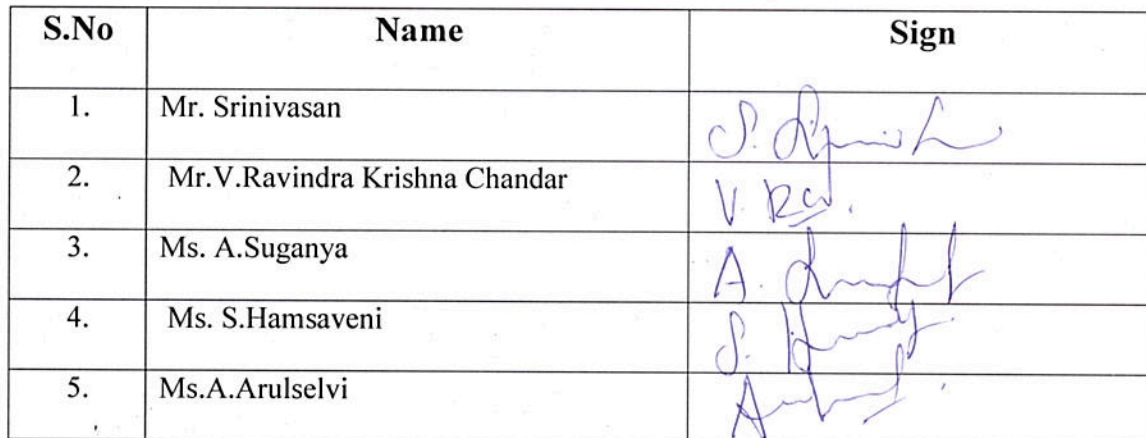 S.No Name Sign
1. Mr. Srinivasan S.
2. Mr.V.Ravindra Krishna Chandar V.
3. Ms. A.Suganya A.
4. Ms. S.Hamsaveni S.
5. Ms.A.Arulselvi